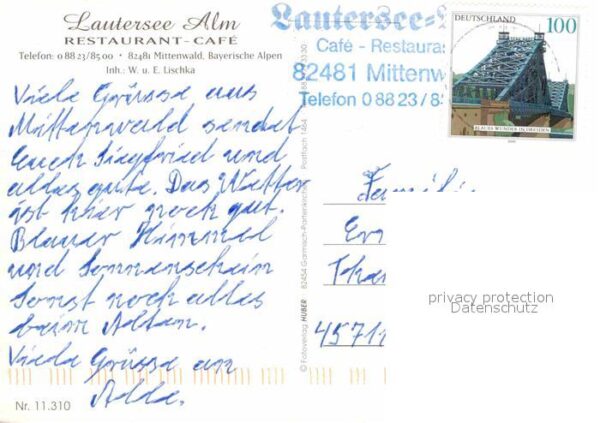 Lautersee Alm
RESTAURANT-CAFÉ
Telefon: 0 88 23/85 00 • 82481 Mittenwald, Bayerische Alpen
Inh.: W. u. E. Lischka
Viele Grüsse aus
Mittenwald sendet
Euch Siegfried und
alles gute. Das Wetter
ist hier noch gut.
Blauer Himmel
und Sonnenschein
Sonst noch alles
beim Alten.
Viele Grüsse an
Alle.
Nr. 11.310
© Fotoverlag HUBER 82454 Garmisch-Partenkirchen Postfach 1464
Lautersee-
Café - Restaura
82481 Mittenw
Telefon 0 88 23/8
DEUTSCHLAND 100
BLAUES WUNDER IN DRESDEN
2000
Famili
45711
privacy protection
Datenschutz